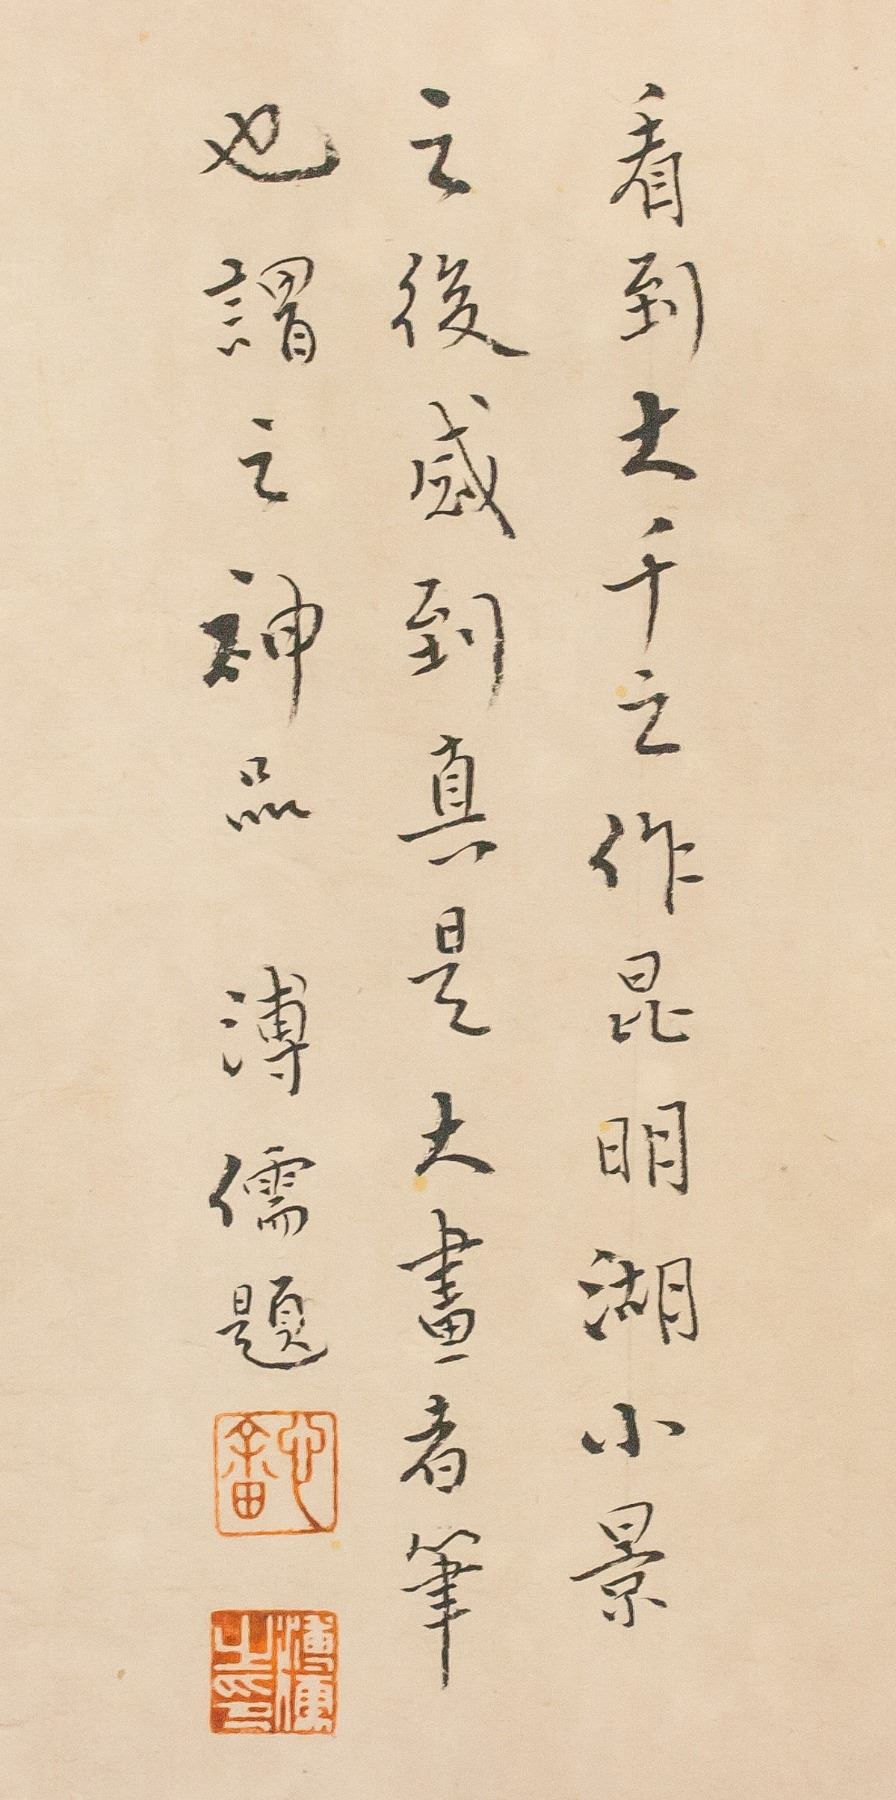 看到大千之作昆明湖小景
之後感到真是大畫者筆
也謂之神品 溥儒題
心畬
溥儒之印